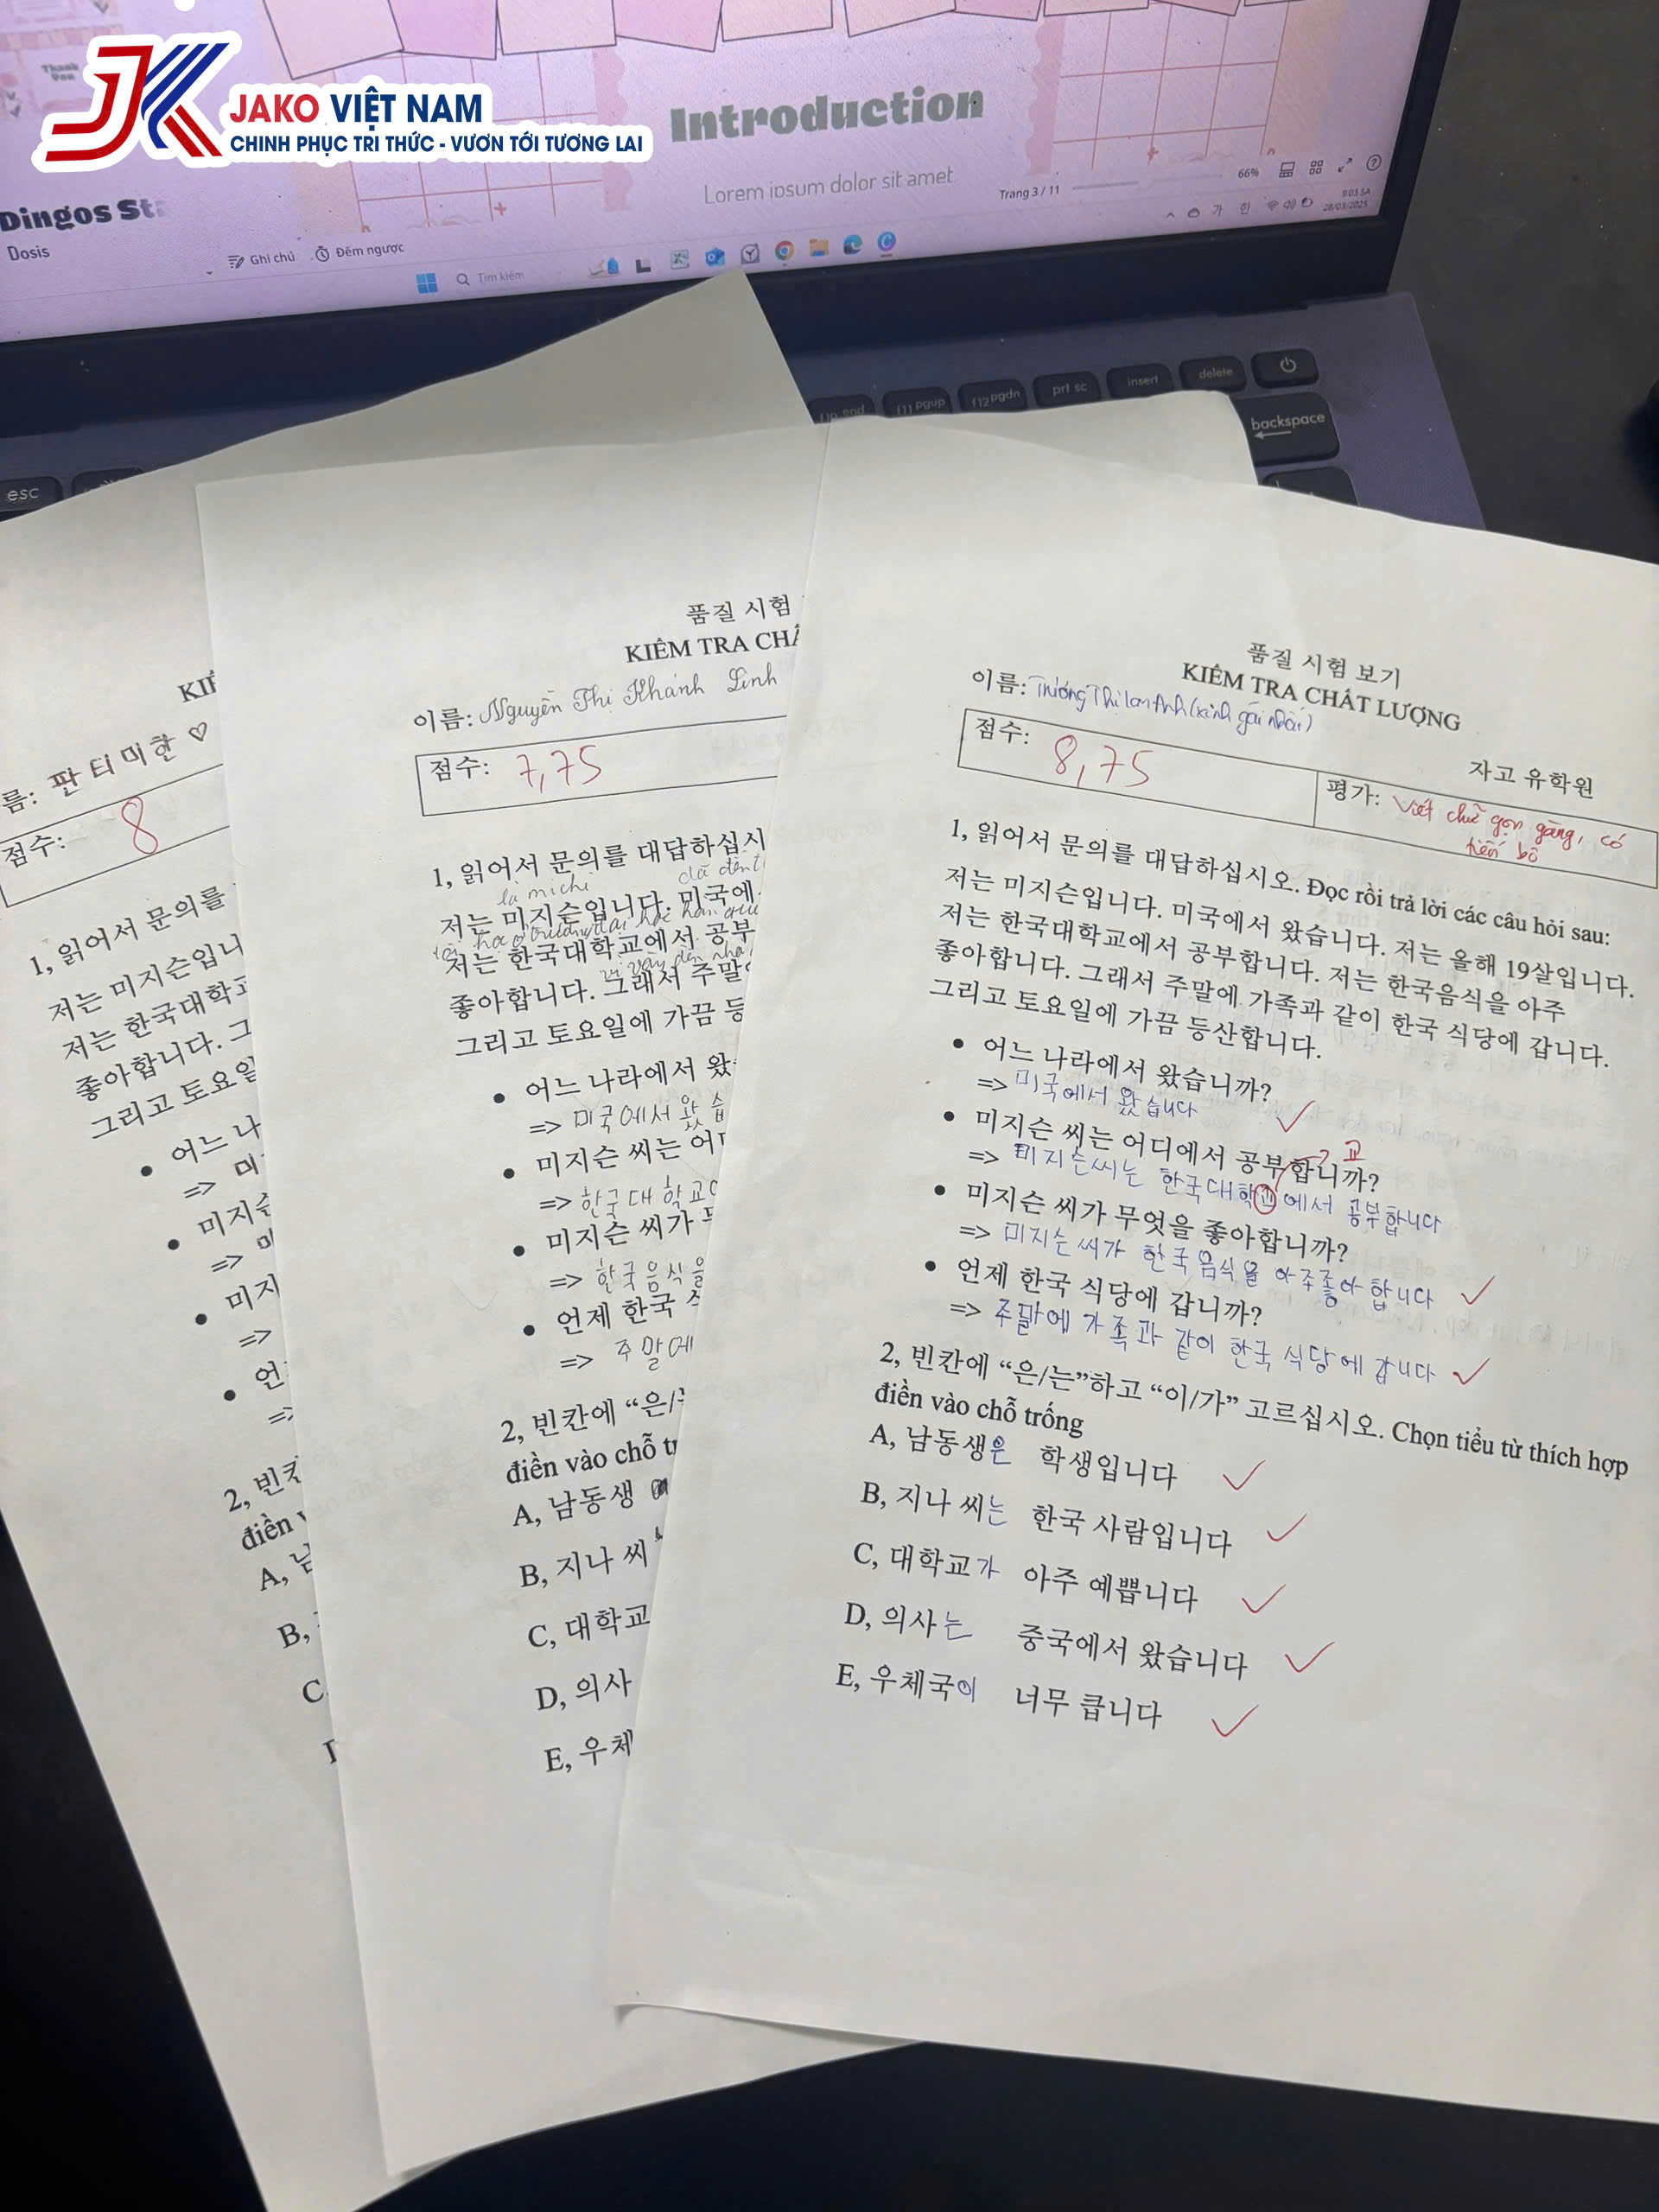 JK
JAKO VIỆT NAM
CHINH PHỤC TRI THỨC - VƯƠN TỚI TƯƠNG LAI
Thank You
Introduction
Lorem ipsum dolor sit amet
Dingos
Dosis
Ghi chú
Đếm ngược
Trang 3 / 11
66%
Tìm kiếm
가 한
28/03/2025
esc
end
f11 pgup
f12 pgdn
prt sc
insert
delete
backspace
름: 판티미한 ♡
점수: 8
1, 읽어서 문의를
저는 미지슨입니
저는 한국대학교
좋아합니다. 그
그리고 토요일
• 어느 나
=> 미
• 미지슨
=> 미
• 미지
=>
• 언
=>
2, 빈칸
điền
A, 남
B,
C
품질 시험
KIỂM TRA CHẤ
이름: Nguyễn Thị Khánh Linh
점수: 7,75
1, 읽어서 문의를 대답하십시
là michi
đã đến
저는 미지슨입니다. 미국에
저는 한국대학교에서 공부
좋아합니다. 그래서 주말에
그리고 토요일에 가끔 등
• 어느 나라에서 왔
=> 미국에서 왔습
• 미지슨 씨는 어디
=> 한국대학교
• 미지슨 씨가 무
=> 한국음식을
• 언제 한국 식
=> 주말에
2, 빈칸에 “은/
điền vào chỗ tr
A, 남동생
B, 지나 씨
C, 대학교
D, 의사
E, 우체
품질 시험 보기
KIỂM TRA CHẤT LƯỢNG
이름: Trương Thị Lan Anh (xinh gái nhất)
자고 유학원
점수: 8,75
평가: Viết chữ gọn gàng, có
tiến bộ
1, 읽어서 문의를 대답하십시오. Đọc rồi trả lời các câu hỏi sau:
저는 미지슨입니다. 미국에서 왔습니다. 저는 올해 19살입니다.
저는 한국대학교에서 공부합니다. 저는 한국음식을 아주
좋아합니다. 그래서 주말에 가족과 같이 한국 식당에 갑니다.
그리고 토요일에 가끔 등산합니다.
• 어느 나라에서 왔습니까?
=> 미국에서 왔습니다
• 미지슨 씨는 어디에서 공부합니까?
교
=> 미지슨씨는 한국대학에서 공부합니다
• 미지슨 씨가 무엇을 좋아합니까?
=> 미지슨씨가 한국음식을 아주좋아합니다
• 언제 한국 식당에 갑니까?
=> 주말에 가족과 같이 한국 식당에 갑니다
2, 빈칸에 “은/는”하고 “이/가” 고르십시오. Chọn tiểu từ thích hợp
điền vào chỗ trống
A, 남동생은 학생입니다
B, 지나 씨는 한국 사람입니다
C, 대학교가 아주 예쁩니다
D, 의사는 중국에서 왔습니다
E, 우체국이 너무 큽니다